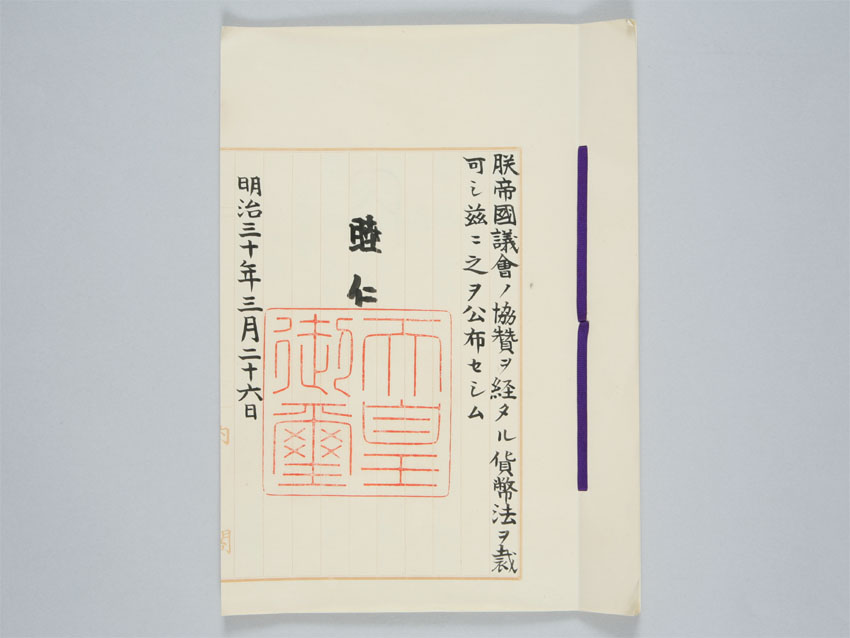 朕帝國議會ノ協贊ヲ経タル貨幣法ヲ裁
可シ玆ニ之ヲ公布セシム
睦仁
天皇
御璽
明治三十年三月二十六日
内閣